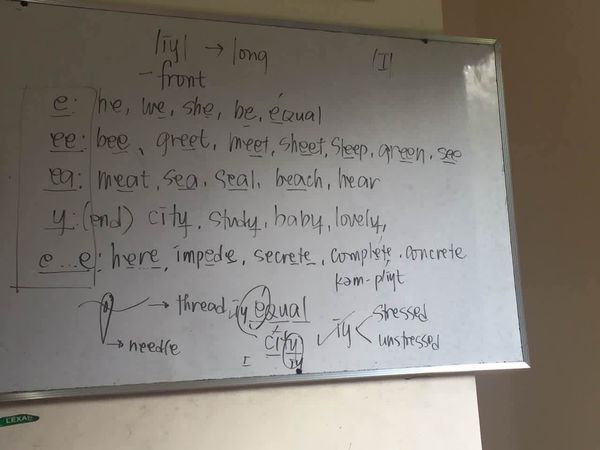 |īy| → long |I|
- front
e: he, we, she, be, équal
ee: bee, greet, meet, sheet, sleep, green, see
ea: meat, sea, seal, beach, hear
y: (end) city, study, baby, lovely,
e...e: here, impede, secrete, compléte, concrete
kəm-plíyt
→ thread īy équal īy stressed
→ needle city unstressed
I īy
LEXAR